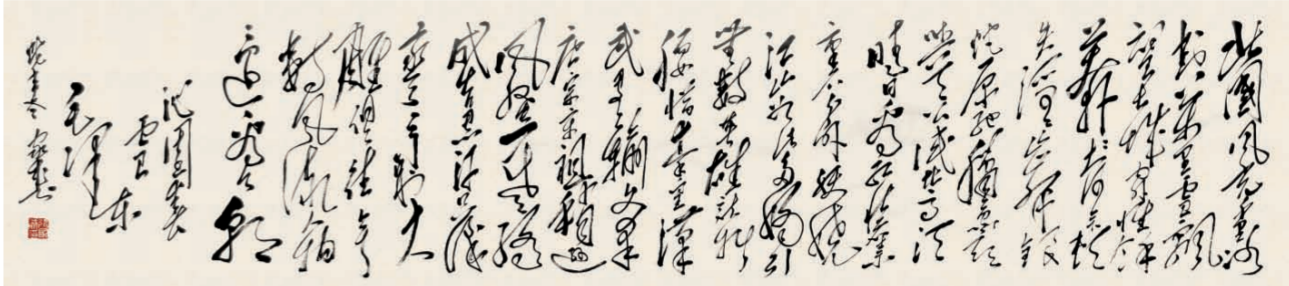 北國風光千里冰
封萬里雪飄
望長城内外惟餘
莽莽大河上下頓
失滔滔山舞銀
蛇原馳蠟象欲
與天公試比高須
晴日看紅裝素
裹分外妖嬈
江山如此多嬌引
無數英雄競折
腰惜秦皇漢
武略輸文采
唐宗宋祖稍遜
風騷一代天驕
成吉思汗只識
彎弓射大
雕俱往矣
數風流人物
還看今朝
沁園春
雪
毛澤東